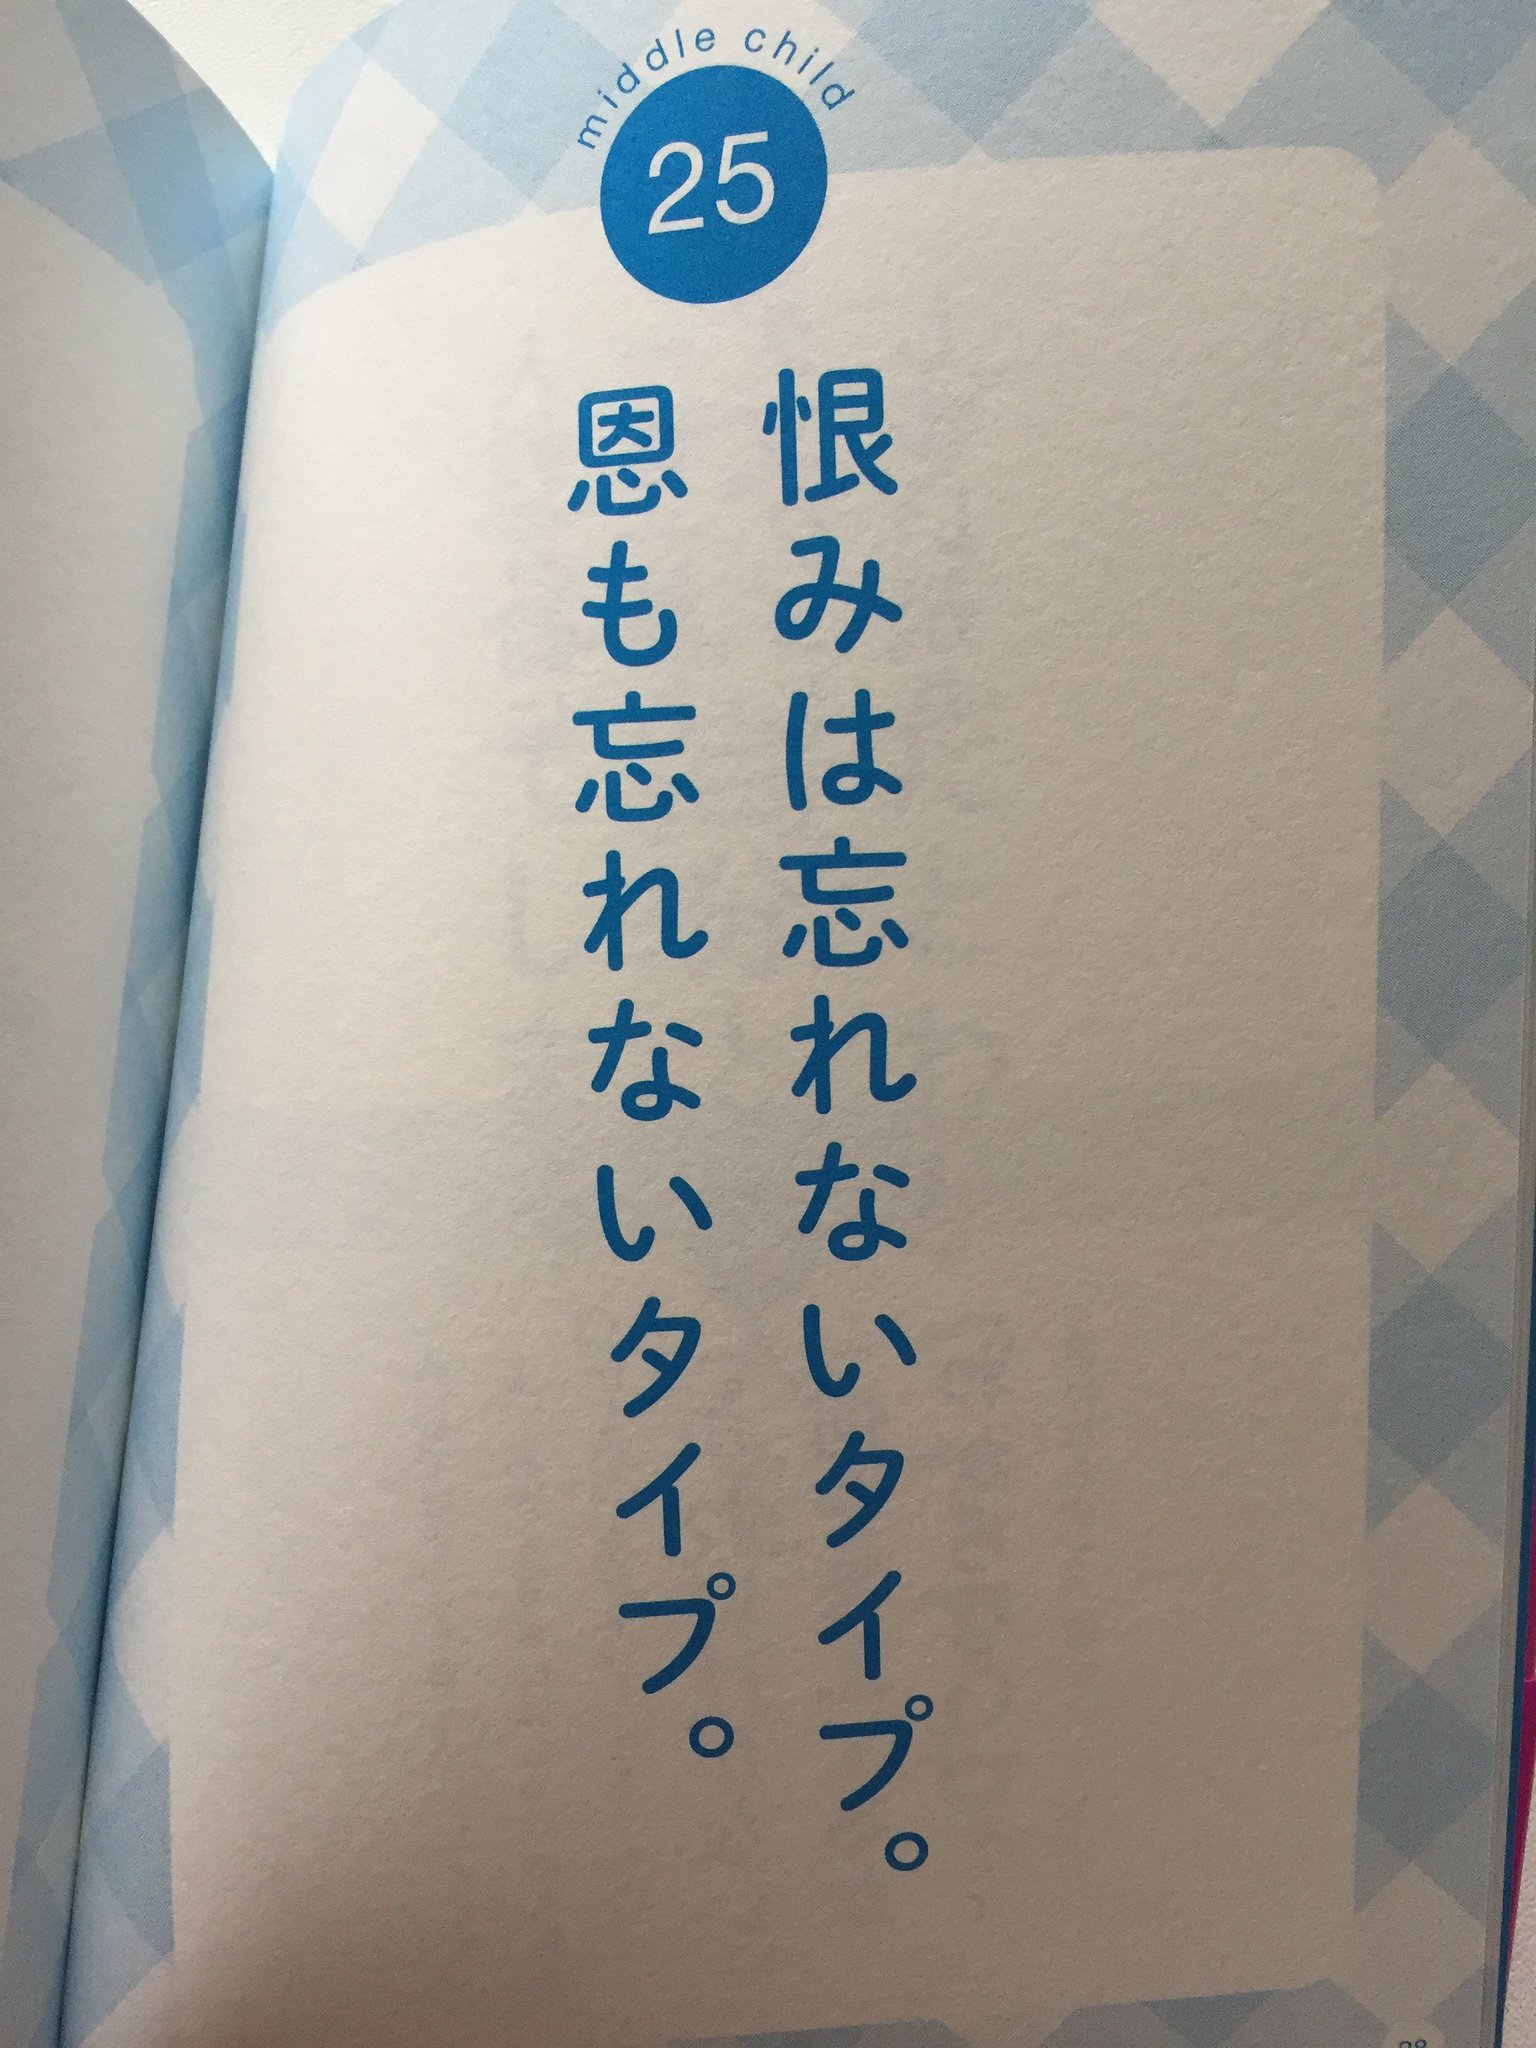 middle child
25
恨みは忘れないタイプ。
恩も忘れないタイプ。